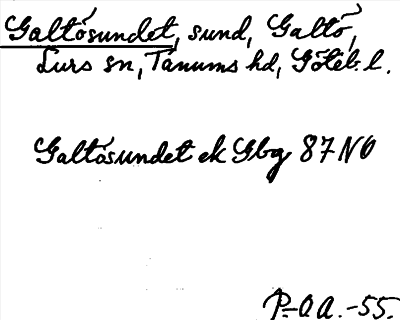 Galtösundet, sund, Galtö,
Lurs sn, Tanums hd, Göteb. l.
Galtösundet ek Gbg 87 NO
P.-O A. -55.